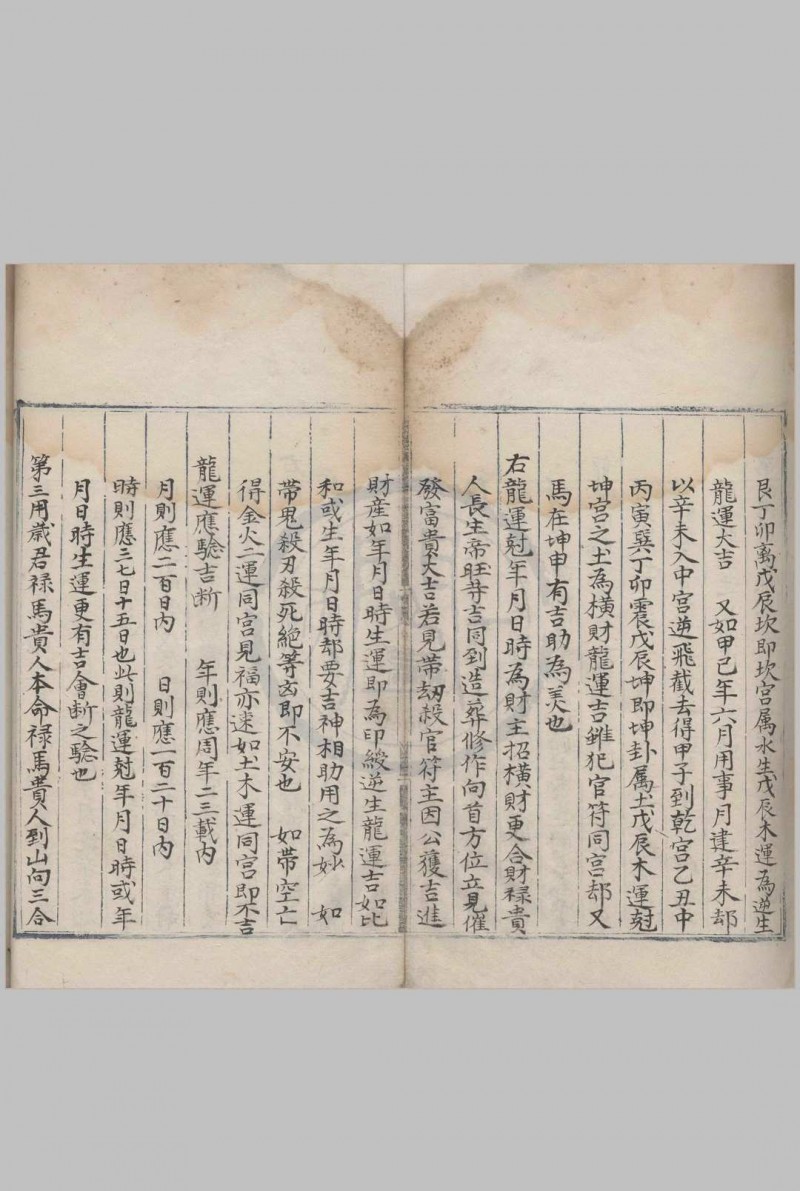 艮丁卯离戊辰坎即坎宮属水生戊辰木運為逆生
龍運大吉　又如甲己年六月用事月建辛未却
以辛未入中宮逆飛截去得甲子到乾宮乙丑中
丙寅巽丁卯震戊辰坤即坤卦属土戊辰木運尅
坤宮之土為橫財龍運吉雖犯官符同宮却又
馬在坤申有吉助為美也
右龍運尅年月日時為財主招橫財更合財禄貴
人長生帝旺等吉同到造葬修作向首方位立見催
發富貴大吉若見帶刼殺官符主因公獲吉進
財産如年月日時生運即為印綬逆生龍運吉如比
和或生年月日時却要吉神相助用之為妙　如
帶鬼殺刃殺死絶等凶即不安也　如帶空亡
得金火二運同宮見福亦速如土木運同宮即不吉
龍運應驗吉断　年則應周年二三載內
月則應二百日內　日則應一百二十日內
時則應三七日十五日也此則龍運尅年月日時或年
月日時生運更有吉會断之驗也
第三用歲君禄馬貴人本命禄馬貴人到山向三合